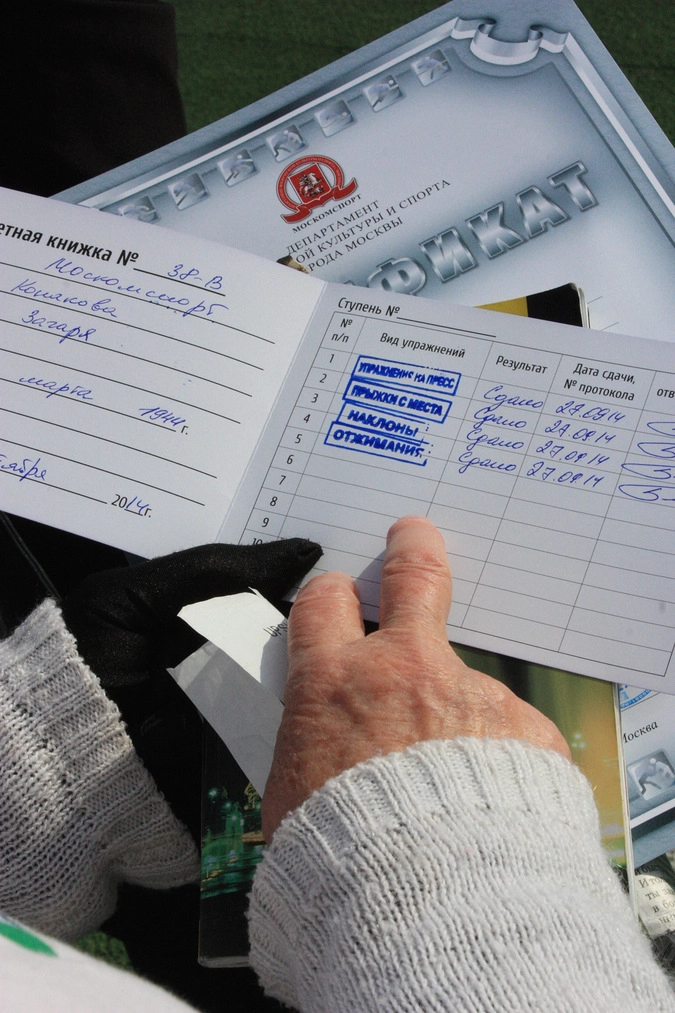 МОСКОМСПОРТ
ДЕПАРТАМЕНТ
ОЙ КУЛЬТУРЫ И СПОРТА
ОРОДА МОСКВЫ
ФИКАТ
етная книжка № 38-В
Москомспорт
Конакова
Загаря
марта 1944 г.
тября
2014г.
Ступень №
№ п/п Вид упражнений Результат Дата сдачи, № протокола отв
1 УПРАЖНЕНИЕ НА ПРЕСС Сдано 27.09.14
2 ПРЫЖКИ С МЕСТА Сдано 27.09.14
3 НАКЛОНЫ Сдано 27.09.14
4 ОТЖИМАНИЯ Сдано 27.09.14
5
6
7
8
9
10
Москва